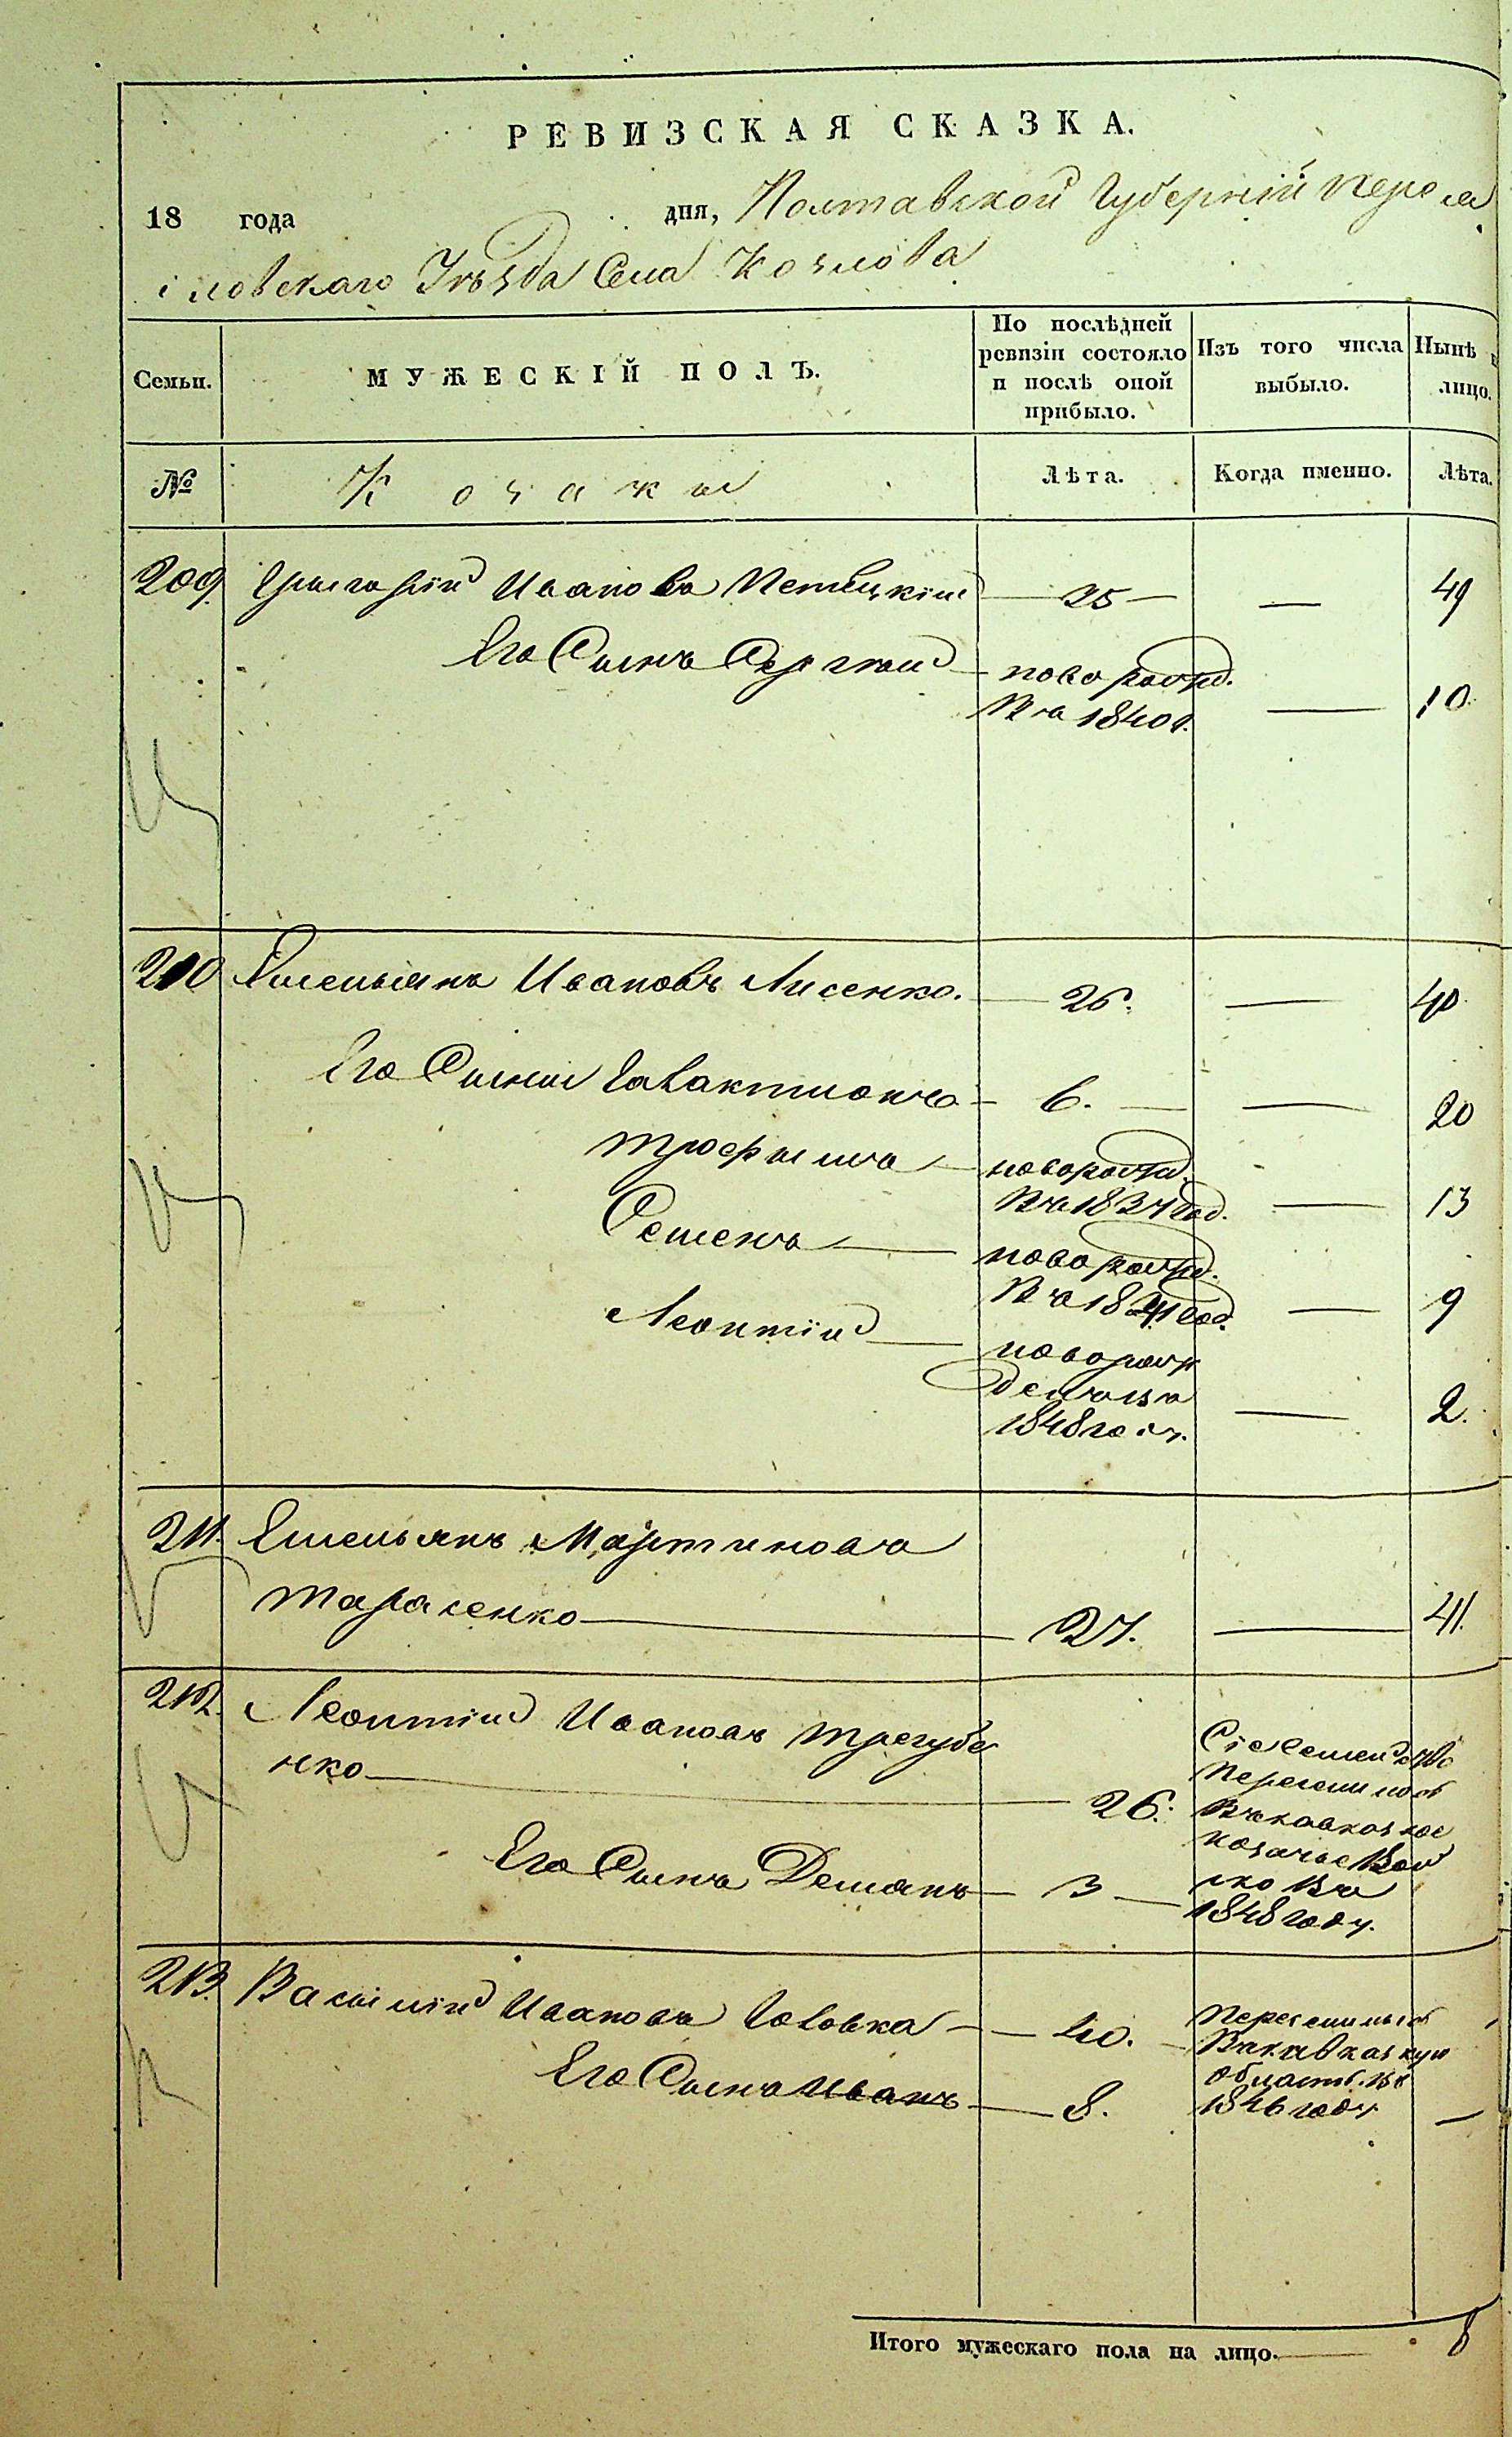 РЕВИЗСКАЯ СКАЗКА.
18 года дня, Полтавской Губерніи Перея
словскаго Уѣзда Села Козлова
Семьи.
МУЖЕСКІЙ ПОЛЪ.
По послѣдней
ревизіи состояло
и послѣ оной
прибыло.
Изъ того числа
выбыло.
Нынѣ
лицо.
№ Козаки Лѣта. Когда именно. Лѣта.
209. Григорій Ивановъ 25 — — 49
Его Сынъ Сергѣй — новорожд.
Въ 1840 — 10
210 Емельянъ Ивановъ Лисенко. — 26. — 40
Его Сыни Галактионъ — 6. — — 20
Трофимъ — новорожд.
Въ 1837 год. — 13
Семенъ — новорожд.
Въ 1841 год. — 9
Леонтій — новорож
денъ въ
1848 году. — 2.
211. Емельянъ Мартиновъ
Тарасенко — 27. — 41.
212. Леонтій Ивановъ Трегубе
нко — 26.
Его Сынъ Демянъ — 3 —
Сіе Семейство
Переселилось
Въ Кавказкое
козачье Вой
ско Въ
1848 году.
213. Василій Ивановъ Головка — 40. —
Его Сынъ Иванъ — 8.
Переселились
Въ Кавказкую
область Въ
1846 году —
Итого мужескаго пола на лицо. — 8